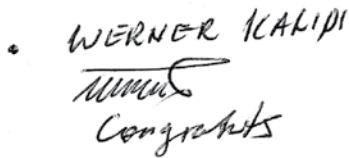 • WERNER KALIPI
Congrats